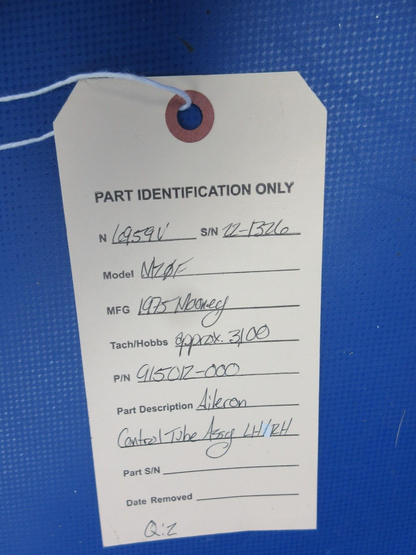 PART IDENTIFICATION ONLY
N 6959V S/N 22-1326
Model M20F
MFG 1975 Mooney
Tach/Hobbs approx. 3100
P/N 915012-000
Part Description Aileron
Control Tube Assy LH/RH
Part S/N
Date Removed
Q:2